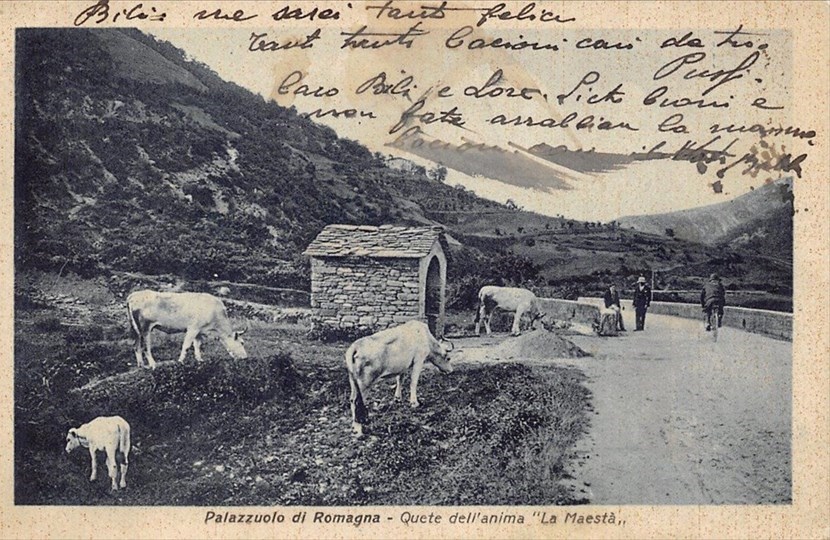 Bibi me sarei tant felice
Tanti tanti bacioni cari da tuo
Caro Bibi e Lore. Siate buoni e
non fate arrabbiare la mamma
bacioni
Palazzuolo di Romagna - Quete dell'anima "La Maestà„